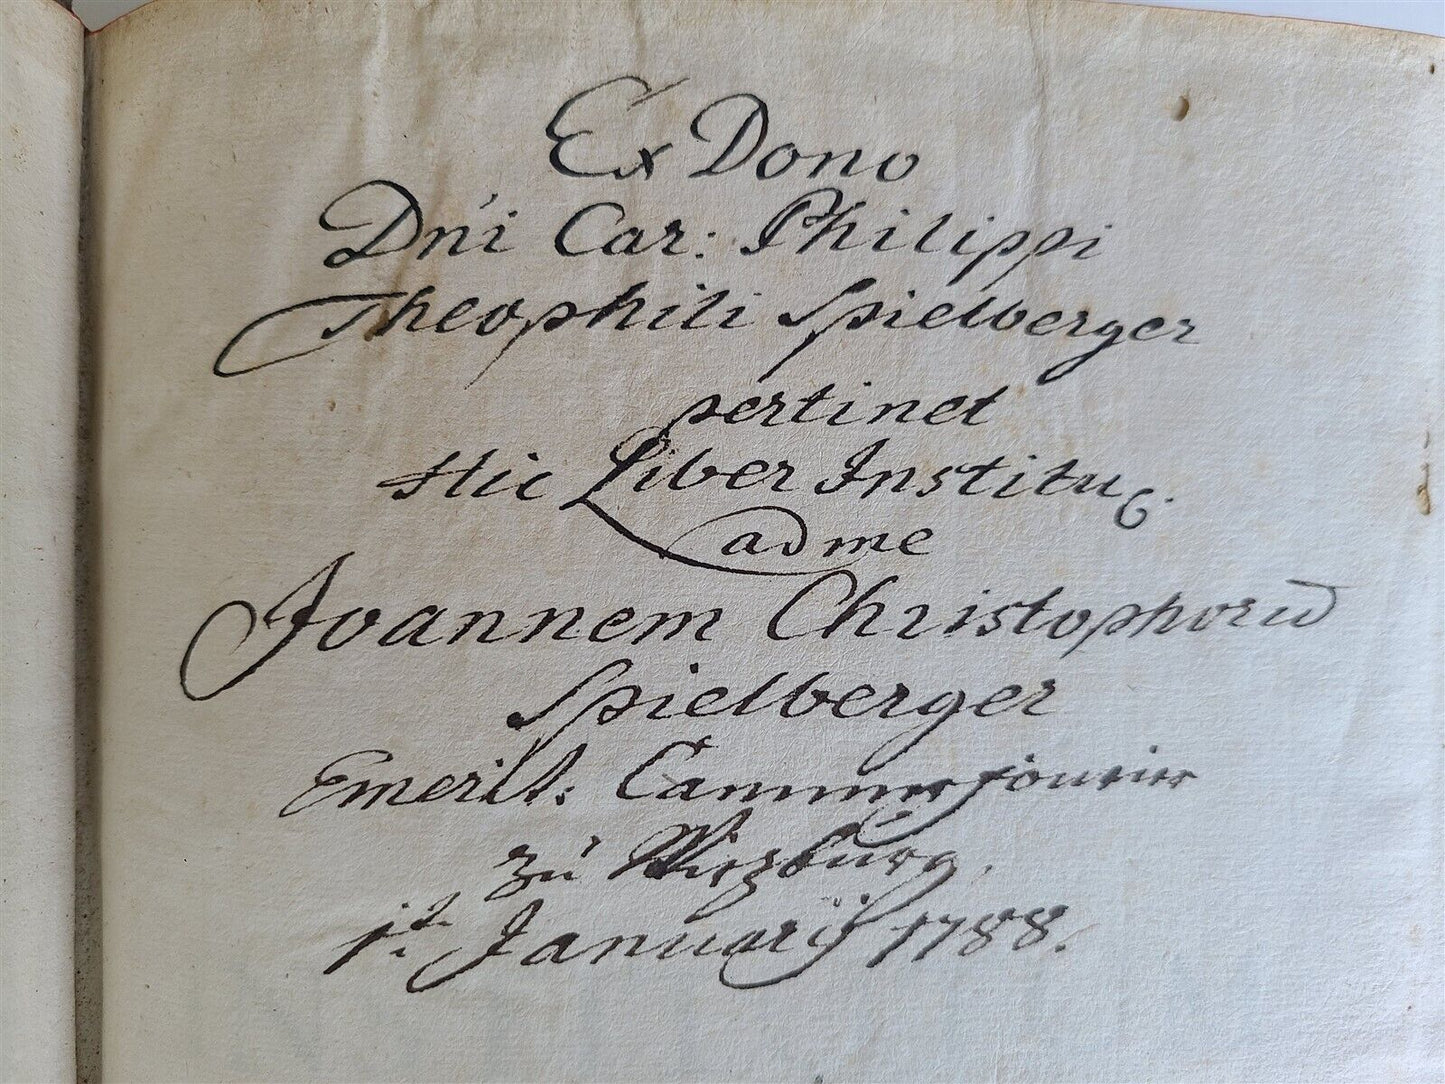 Ex Dono
Dn'i Car: Philippi
Theophili Spielberger
pertinet
Hic Liber Institu
ad me
Joannem Christophorū
Spielberger
Emerit: Cammerfourier
zu Wirzburg.
1t. Januarij 1788.